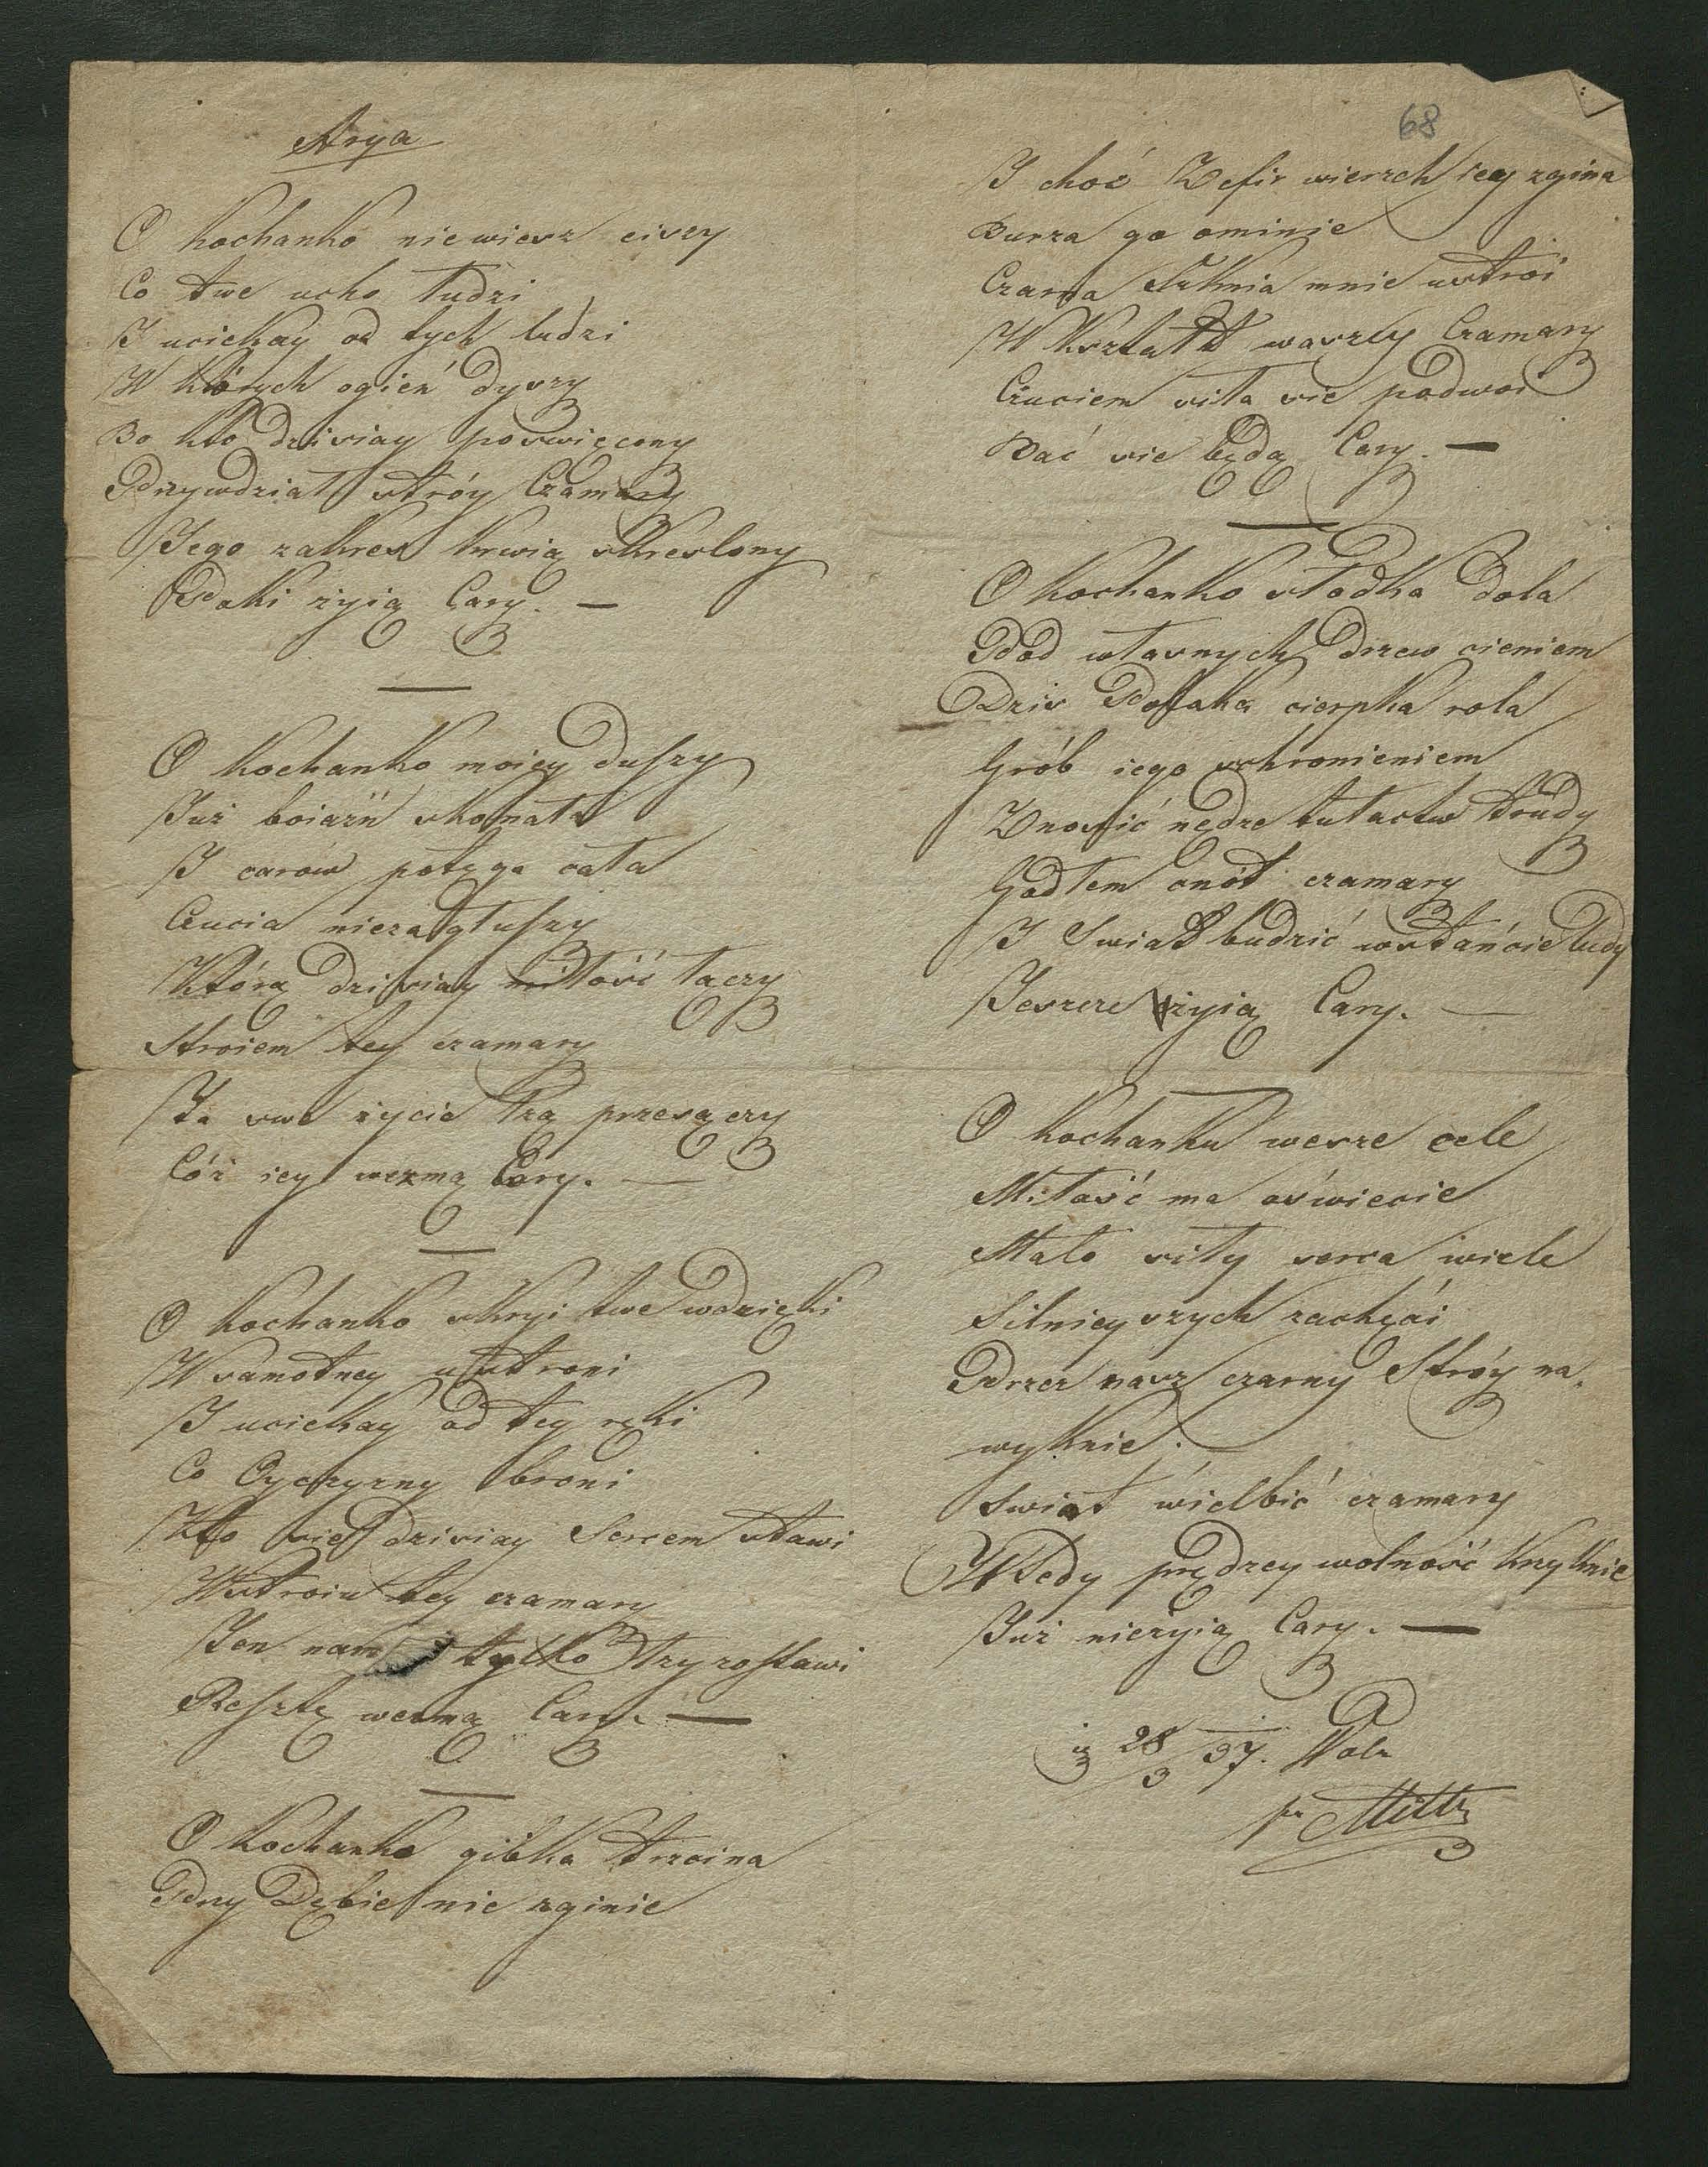 Arya
O kochanko niewiesz ciszy
Co twe ucho łudzi
I uciekay od tych ludzi
W których ogień dyszy
Bo kto dzisiay poswięcony
Przywdział stróy Czamary
Jego zakres krwią skreslony
Poki żyią Cary. —
O kochanko moiey duszy
Już boiaźń skonała
I carow potęga cała
Czucia niezagłuszy
Którą dzisiay miłość łączy
Stroiem tey czamary
Ta swe życie łzą przesączy
Cóż iey wezmą Cary. —
O kochanko skryi twe wdzięki
W samotney ustroni
I uciekay od tey ręki
Co Oyczyzny broni
Kto się dzisiay Sercem stawi
W stroiu tey czamary
Ten nam tylko łzy zostawi
Resztę wezmą Cary. —
O kochanko gibka trzcina
Przy Dębie nie zginie
68
I choć Zefir wierzch iey zgina
Burza go ominie
Czarna Suknia mnie ustroi
W kształt waszey Czamary
Czuciem siła się podwoi
Bać się będą Cary. —
O kochanko słodka dola
Pod własnych drzew cieniem
Dzis Polaka cierpka rola
Grób iego schronieniem
Znosić nędze tułactw trudy
Godłem cnót czamary
I Swiat budzić wstańcie ludy
Jeszcze żyią Cary. —
O kochanku wesze cele
Miłość ma oświecie
Mało siły serca wiele
Silnieyszych zachęci
Przez nasz czarny Stróy na,
wyknie.
Swiat wielbić czamary
Wtedy prędzey wolność krzyknie
Już nieżyią Cary. —
28/3 37.